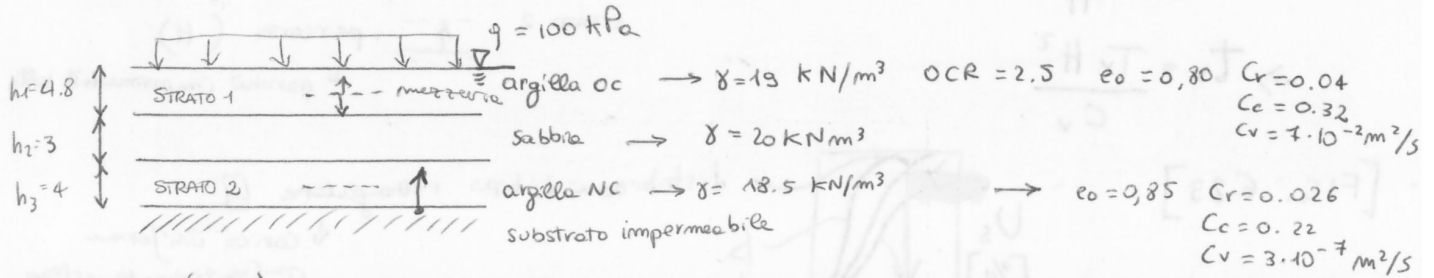 q = 100 kPa
h1=4.8 STRATO 1 mezzeria argilla OC → γ=19 KN/m³ OCR = 2.5 e0 = 0,80 Cr=0.04
Cc = 0.32
Cv = 7·10⁻² m²/s
h2=3 sabbia → γ = 20 KN m³
h3=4 STRATO 2 argilla NC → γ= 18.5 KN/m³ → e0=0,85 Cr=0.026
substrato impermeabile Cc = 0.22
Cv = 3·10⁻⁷ m²/s